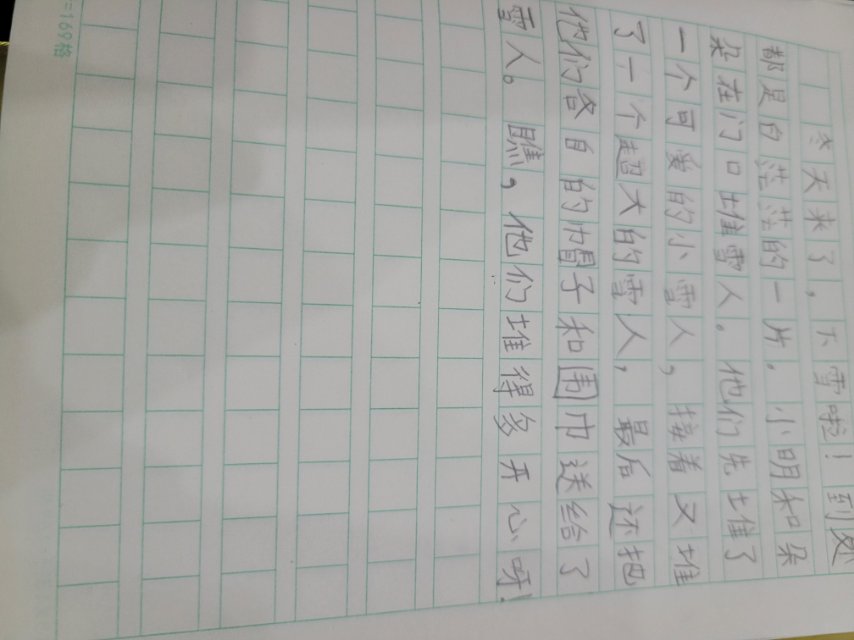 冬天来了，下雪啦！到处
都是白茫茫的一片。小明和朵
朵在门口堆雪人。他们先堆了
一个可爱的小雪人，接着又堆
了一个超大的雪人，最后还把
他们各自的帽子和围巾送给了
雪人。瞧，他们堆得多开心呀！
=169格